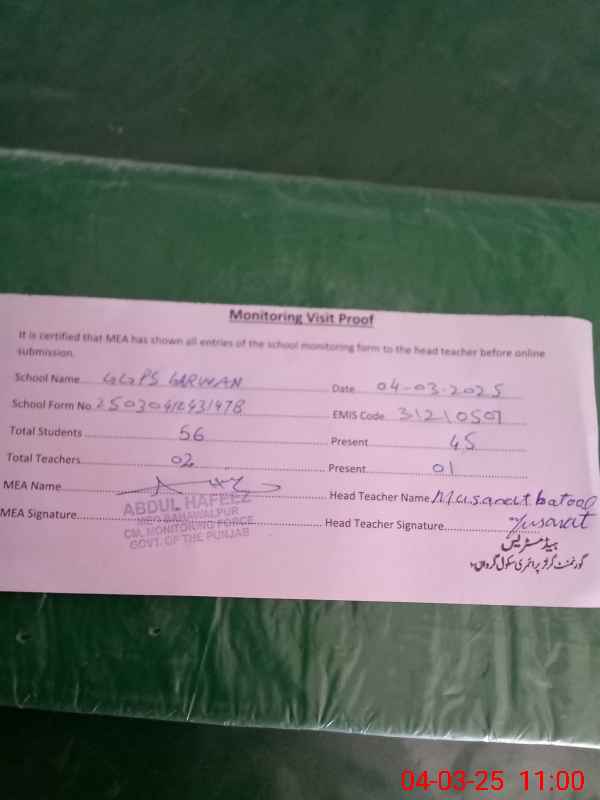 Monitoring Visit Proof
It is certified that MEA has shown all entries of the school monitoring form to the head teacher before online
submission.
School Name GGPS GARWAN Date 04-03-2025
School Form No 25030412431478 EMIS Code 31210507
Total Students 56 Present 45
Total Teachers 02 Present 01
MEA Name Head Teacher Name Musarat batool
MEA Signature Head Teacher Signature Musarat
ABDUL HAFEEZ
MEO BAHAWALPUR
CM, MONITORING FORCE
GOVT. OF THE PUNJAB
ہیڈمسٹریس
گورنمنٹ گرلز پرائمری سکول گرواں
04-03-25 11:00